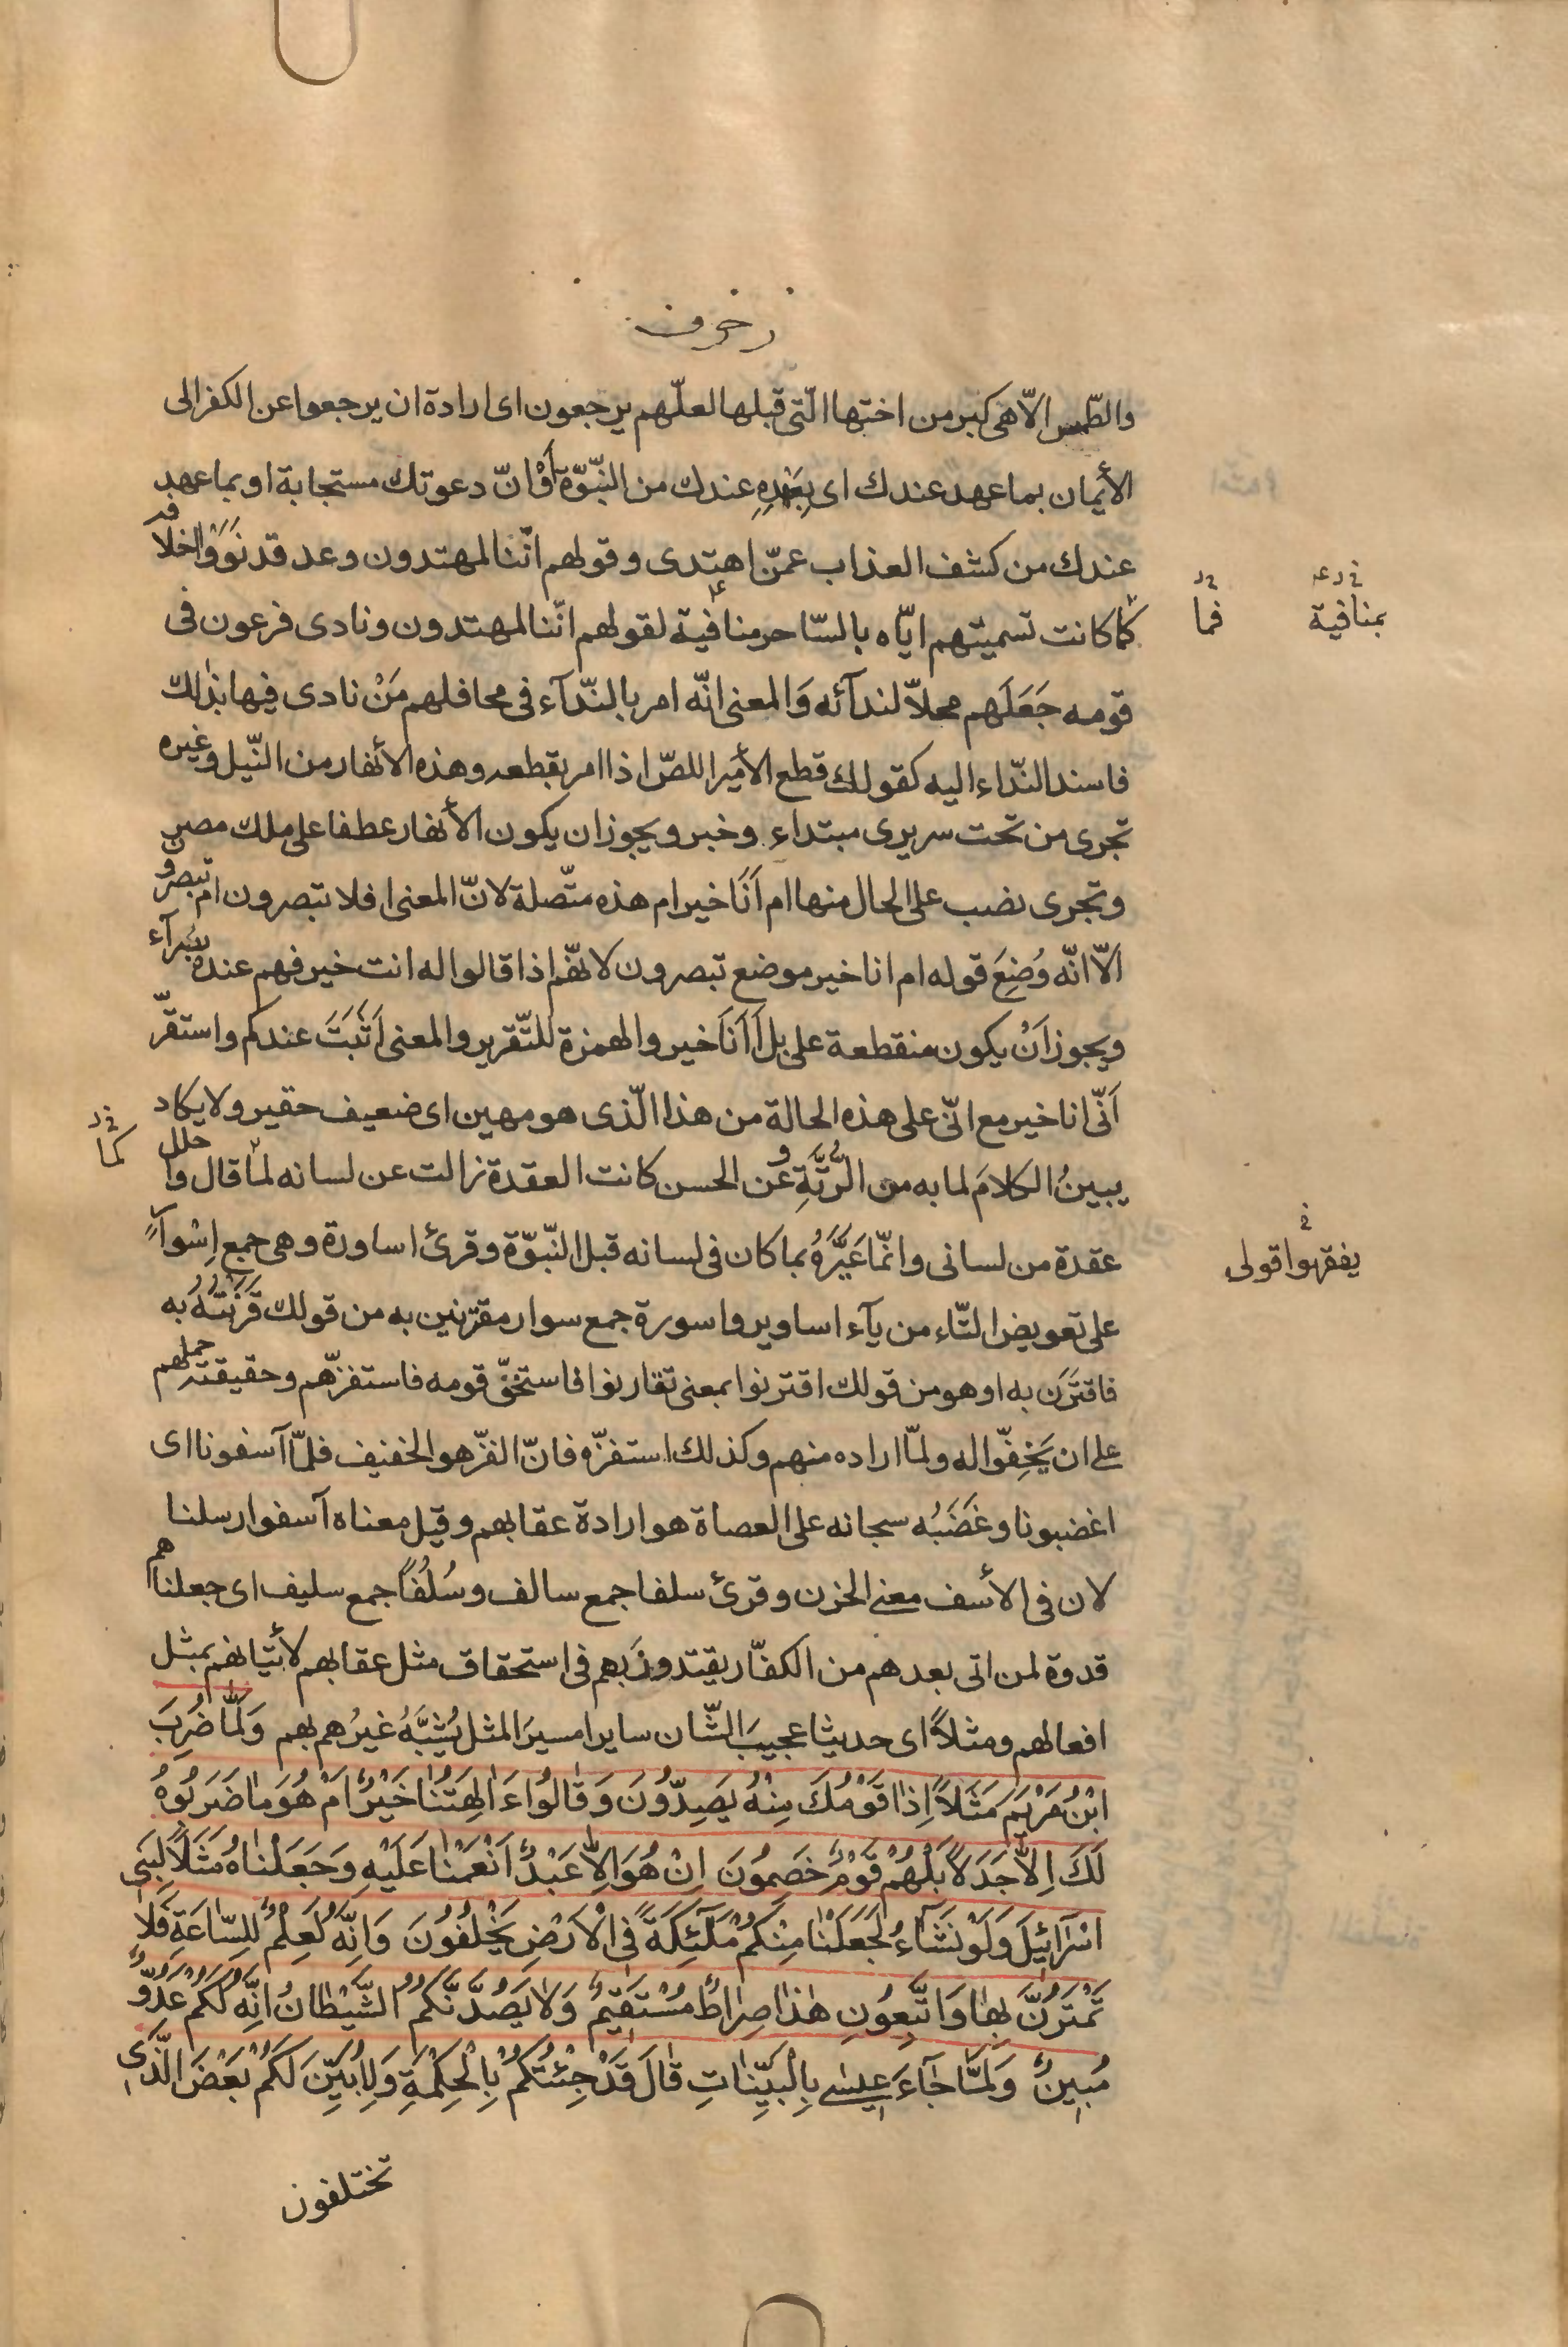 زخرف
والطّمس الّا هى كبر من اختها الّتى قبلها لعلّهم يرجعون اى ارادة ان يرجعوا عن الكفر الى
الأيمان بما عهد عندك اى بِعَهْدِهِ عندك من النّبوّة أَوْ انّ دعوتك مستجابة او بما عهد
عندك من كشف العذاب عمّن اهتدى و قولهم انّنا لمهتدون وعد قد نَوَوْا اخلافه
كما كانت تسميتهم ايّاه بالسّاحر منافية لقولهم انّنا لمهتدون و نادى فرعون فى
فما
بمنافية
قومه جَعَلَهم محلّا لندآئه وَالمعنى انّه امر بالنّدآء فى محافلهم مَنْ نادى فيها بذلك
فاسند النّداء اليه كقولك قطع الأمير اللصّ اذا امر بقطعه وهذه الأنهار من النّيل وغيره
تجرى من تحت سريرى مبتداء وخبر ويجوز ان يكون الأنهار عطفا على ملك مصر
وتجرى نصب على الحال منها ام اَنَا خير ام هذه متّصلة لانّ المعنى افلا تبصرون ام تبصرون
الّا انّه وُضِعَ قوله ام انا خير موضع تبصرون لانهّم اذا قالوا له انت خير فهم عنده بُصَرآء
ويجوز اَنْ يكون منقطعة على بل أَ اَنَا خير والهمزة للتّقرير والمعنى أَثَبَتَ عندكم واستقرّ
اَنّى انا خير مع انّى على هذه الحالة من هذا الّذى هو مهين اى ضعيف حقير ولا يكاد
يبينُ الكلامَ لما به من الرُّتَّةِ وعن الحسن كانت العقدة زالت عن لسانه لمّا قال واحلل
كما
عقدة من لسانى وانّما عَيَّرَهُ بما كان فى لسانه قبل النّبوّة وقرئ اساورة وهى جمع اِسْوآرٍ
يفقهوا قولى
على تعويض التّاء من يآء اساوير واسورة جمع سوار مقترنين به من قولك قَرَنْتُهُ به
فاقتَرَن به او هو من قولك اقترنوا بمعنى تقارنوا فاستخفّ قومه فاستفزّهم وحقيقته حملهم
على ان يَخِفّوا له ولمّا اراده منهم وكذلك استفزّه فانّ الفزّ هو الخفيف فلمّا آسفونا اى
اغضبونا وغَضَبُه سبحانه على العصاة هو ارادة عقابهم وقيل معناه آسفوا رسلنا
لان فى الأسف معنى الحزن و قرئ سلفا جمع سالف و سُلُفًا جمع سليف اى جعلناهم
قدوة لمن اتى بعدهم من الكفّار يقتدون بهم فى استحقاق مثل عقابهم لأتيانهم بمثل
افعالهم ومثلاً اى حديثا عجيبَ الشّان سايرا مسيرَ المثل يُشَبَّهُ غيرُهم بهم وَلَمّٰا ضُرِبَ
ابْنُ مَرْيَمَ مَثَلاً اِذٰا قَوْمُكَ مِنْهُ يَصِدُّونَ وَ قٰالُوا ءَاٰلِهَتُنٰا خَيْرٌ اَمْ هُوَ مٰا ضَرَبُوهُ
لَكَ اِلاّٰ جَدَلاً بَلْ هُمْ قَوْمٌ خَصِمُونَ اِنْ هُوَ اِلاّٰ عَبْدٌ اَنْعَمْنٰا عَلَيْهِ وَجَعَلْنٰاهُ مَثَلاً لِبَنى
اسْرٰآئيلَ وَلَوْ نَشٰآءُ لَجَعَلْنٰا مِنْكُمْ مَلٰٓئِكَةً فِى الْاَرْضِ يَخْلُفُونَ وَاِنَّهُ لَعِلْمٌ لِلسّٰاعَةِ فَلاٰ
تَمْتَرُنَّ بِهٰا وَاتَّبِعُونِ هٰذٰا صِرٰاطٌ مُسْتَقيمٌ وَلاٰ يَصُدَّنَّكُمُ الشَّيْطٰانُ اِنَّهُ لَكُمْ عَدُوٌّ
مُبينٌ وَلَمّٰا جٰآءَ عيسٰى بِالْبَيِّنٰاتِ قٰالَ قَدْ جِئْتُكُمْ بِالْحِكْمَةِ وَلِاُبَيِّنَ لَكُمْ بَعْضَ الَّذى
تختلفون